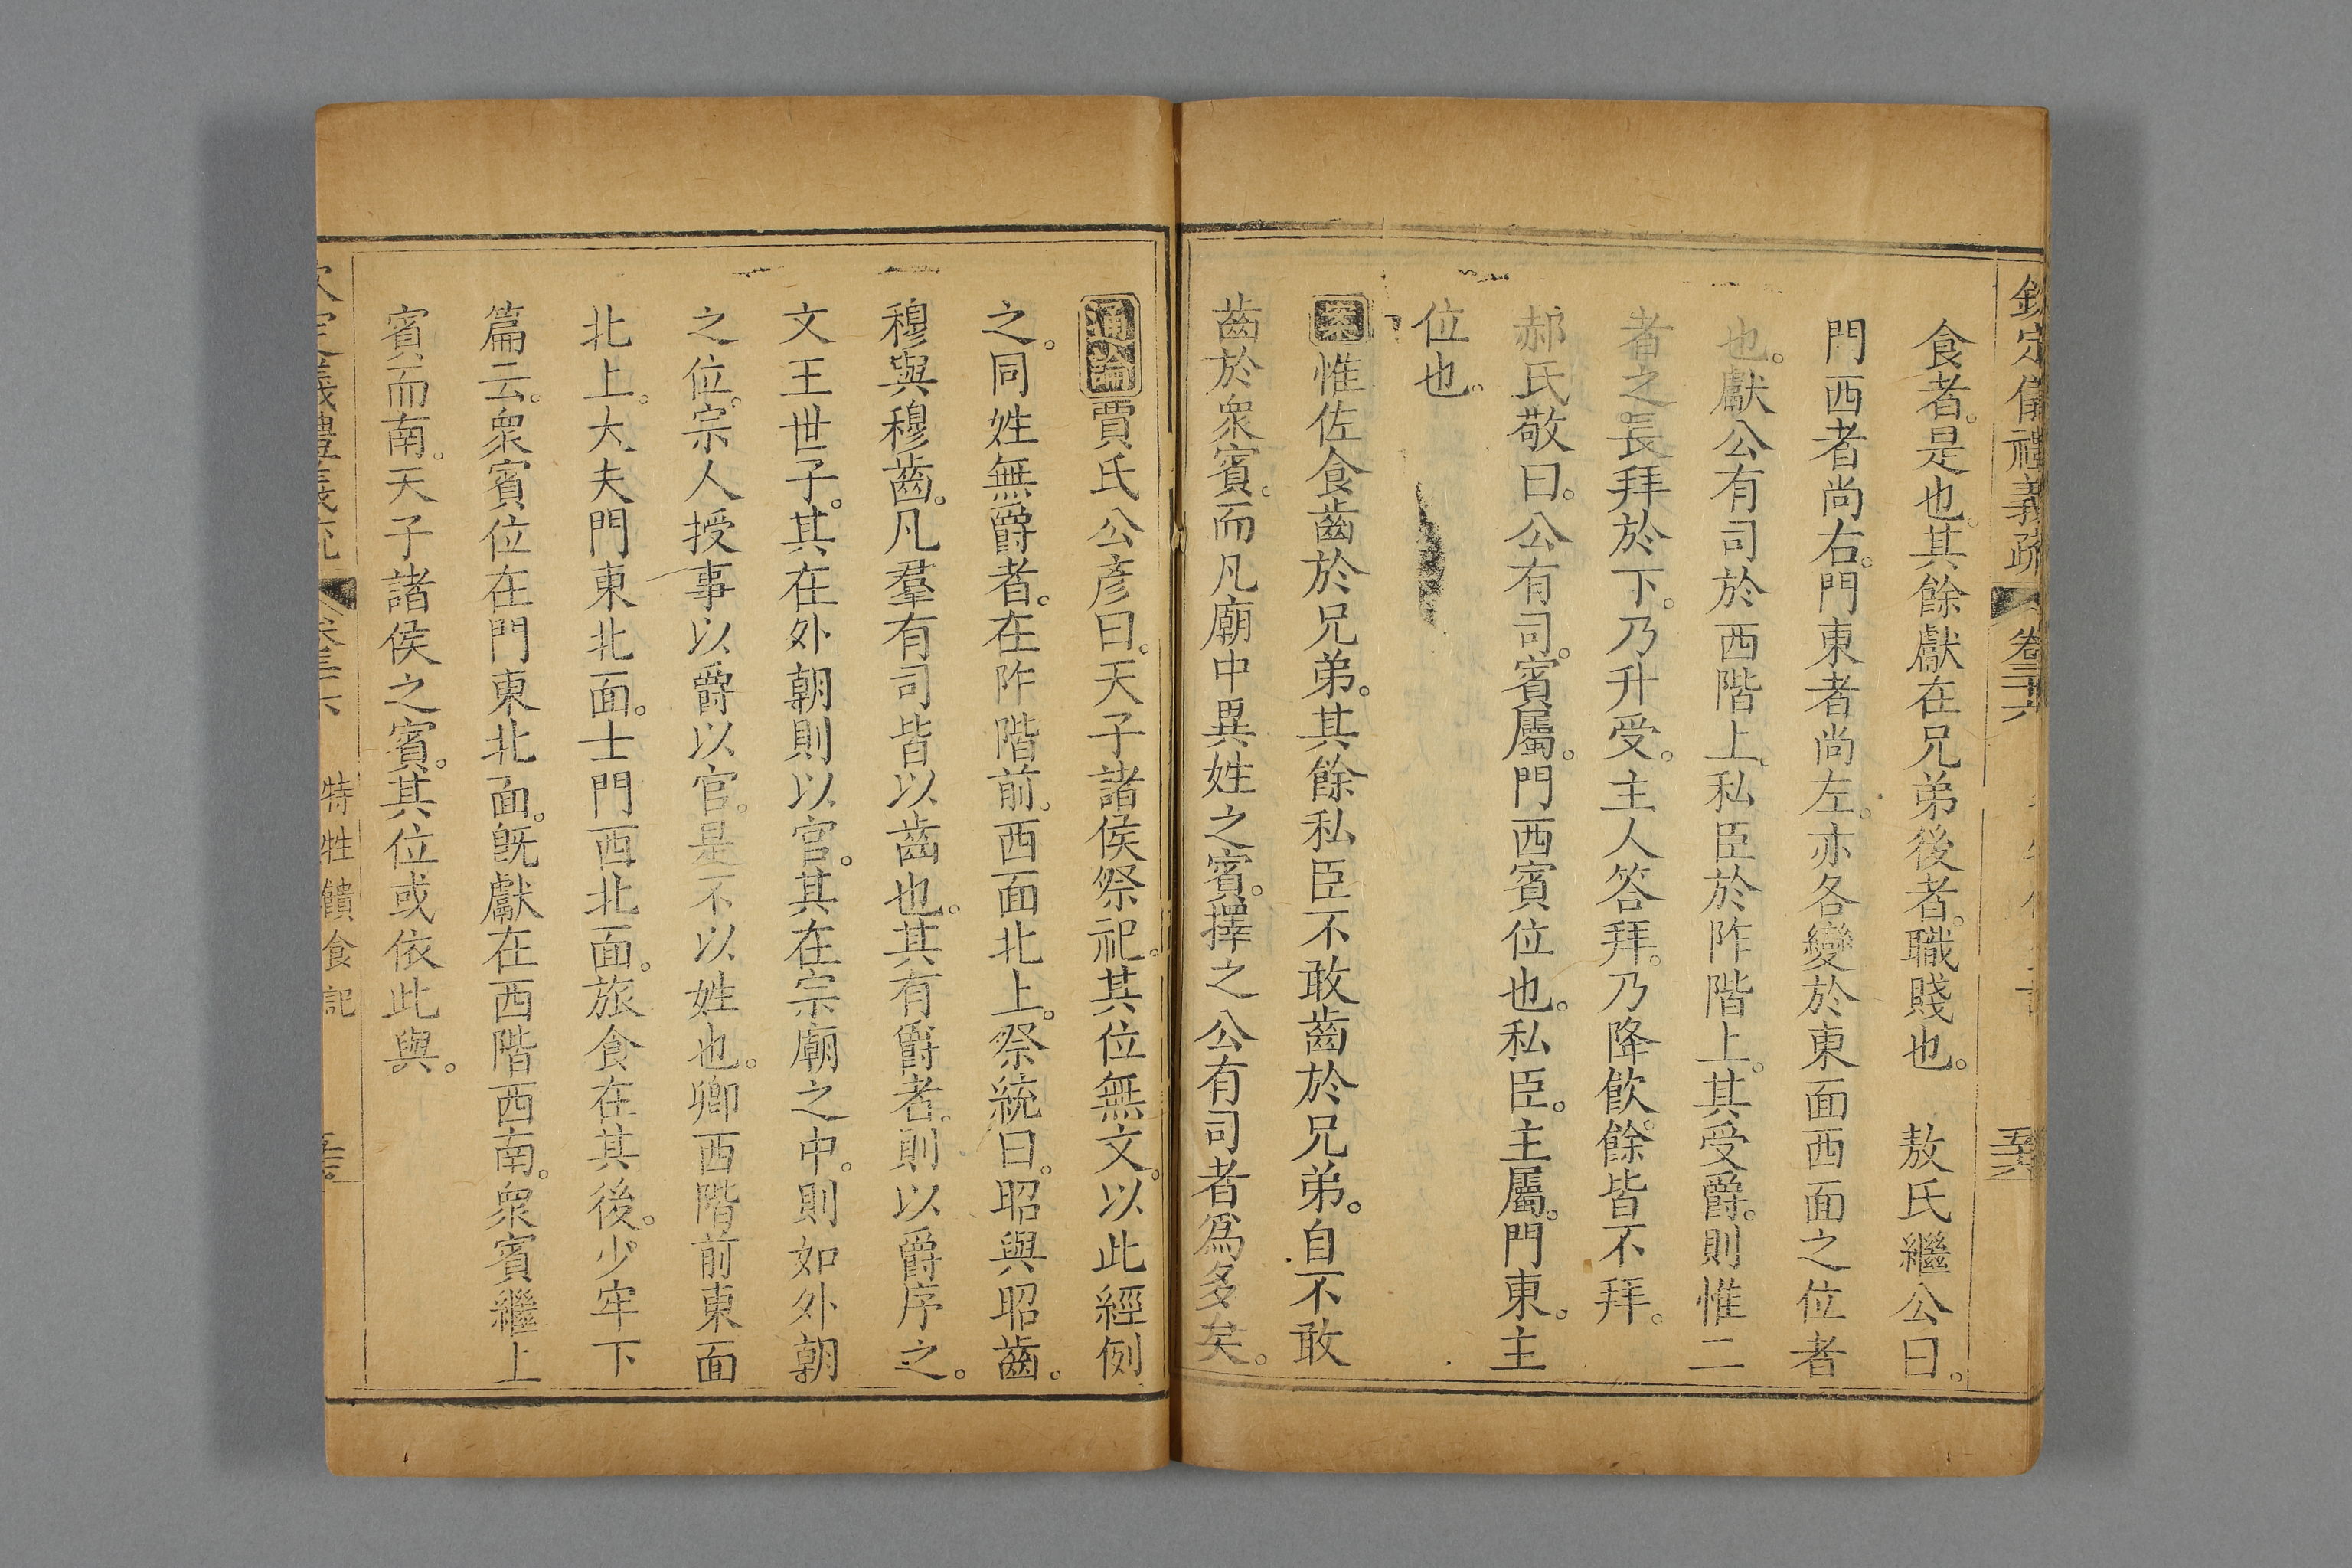 欽定儀禮義疏 卷三十六
食者。是也。其餘獻在兄弟後者。職賤也。 敖氏繼公曰。
門西者尚右。門東者尚左。亦各變於東面西面之位者
也。獻公有司於西階上。私臣於阼階上。其受爵。則惟二
者之長拜於下。乃升受。主人答拜。乃降飲。餘皆不拜。
郝氏敬曰。公有司。賓屬。門西賓位也。私臣。主屬。門東。主
位也。
案惟佐食齒於兄弟。其餘私臣不敢齒於兄弟。自不敢
齒於衆賓。而凡廟中異姓之賓。擇之公有司者爲多矣。
通論賈氏公彥曰。天子諸侯祭祀。其位無文。以此經例
之。同姓無爵者。在阼階前。西面北上。祭統曰。昭與昭齒。
穆與穆齒。凡羣有司皆以齒也。其有爵者。則以爵序之。
文王世子。其在外朝則以官。其在宗廟之中。則如外朝
之位。宗人授事以爵以官。是不以姓也。卿西階前東面
北上。大夫門東北面。士門西北面。旅食在其後。少牢下
篇云。衆賓位在門東北面。旣獻在西階西南。衆賓繼上
賓而南。天子諸侯之賓。其位或依此與。
特牲饋食記